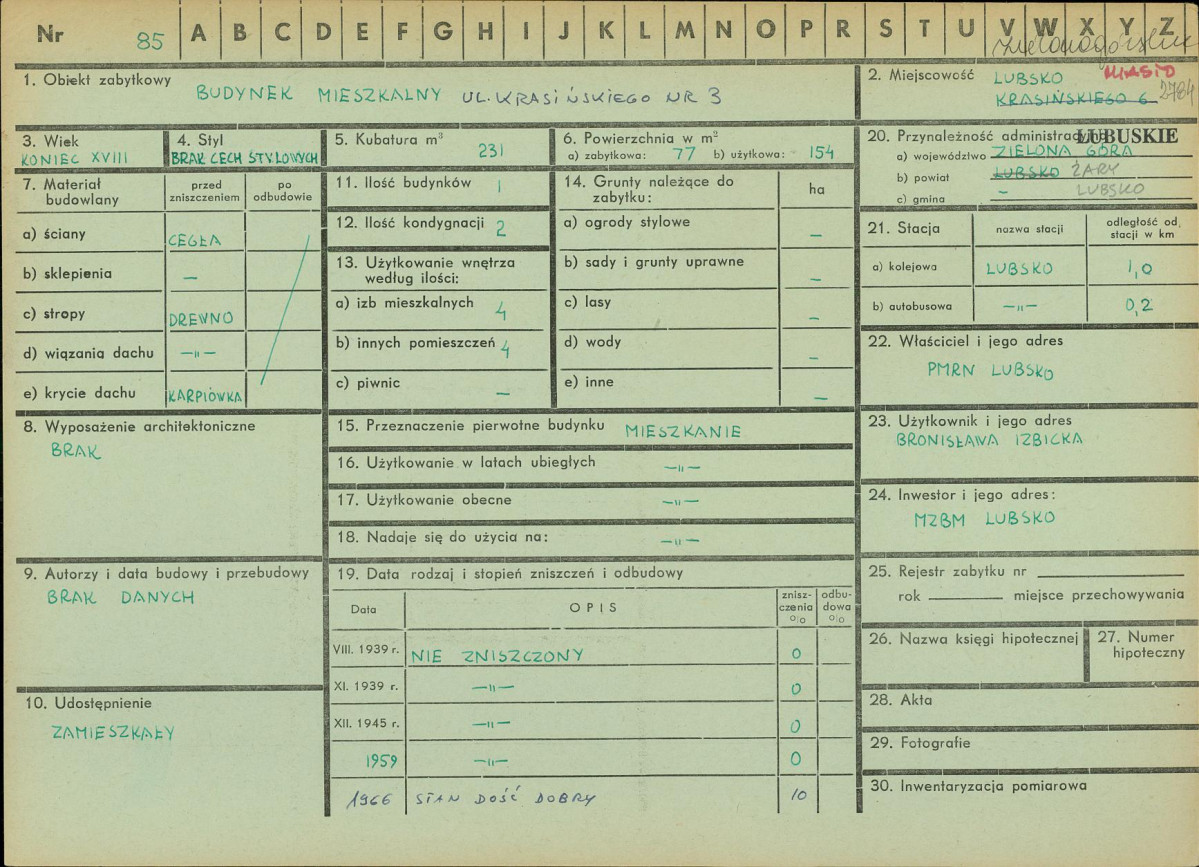 Nr 85 A B C D E F G H I J K L M N O P R S T U V W X Y Z
zielonogórskie
1. Obiekt zabytkowy
BUDYNEK MIESZKALNY UL. KRASIŃSKIEGO NR 3
2. Miejscowość LUBSKO MIASTO
KRASIŃSKIEGO 6 2784
3. Wiek
KONIEC XVIII
4. Styl
BRAK CECH STYLOWYCH
5. Kubatura m³
231
6. Powierzchnia w m²
a) zabytkowa: 77 b) użytkowa: 154
20. Przynależność administracyjna
LUBUSKIE
a) województwo ZIELONA GÓRA
b) powiat LUBSKO ŻARY
c) gmina – LUBSKO
7. Materiał budowlany
przed zniszczeniem
po odbudowie
a) ściany CEGŁA
b) sklepienia —
c) stropy DREWNO
d) wiązania dachu —"—
e) krycie dachu KARPIÓWKA
11. Ilość budynków 1
12. Ilość kondygnacji 2
13. Użytkowanie wnętrza
według ilości:
a) izb mieszkalnych 4
b) innych pomieszczeń 4
c) piwnic —
14. Grunty należące do
zabytku:
ha
a) ogrody stylowe —
b) sady i grunty uprawne —
c) lasy —
d) wody —
e) inne —
21. Stacja
nazwa stacji
odległość od
stacji w km
a) kolejowa LUBSKO 1,0
b) autobusowa —"— 0,2
22. Właściciel i jego adres
PMRN LUBSKO
8. Wyposażenie architektoniczne
BRAK
15. Przeznaczenie pierwotne budynku MIESZKANIE
16. Użytkowanie w latach ubiegłych —"—
17. Użytkowanie obecne —"—
18. Nadaje się do użycia na: —"—
23. Użytkownik i jego adres
BRONISŁAWA IZBICKA
24. Inwestor i jego adres:
MZBM LUBSKO
9. Autorzy i data budowy i przebudowy
BRAK DANYCH
19. Data rodzaj i stopień zniszczeń i odbudowy
Data
OPIS
znisz-
czenia
%
odbu-
dowa
%
VIII. 1939 r. NIE ZNISZCZONY 0
XI. 1939 r. —"— 0
XII. 1945 r. —"— 0
1959 —"— 0
1966 STAN DOŚĆ DOBRY 10
10. Udostępnienie
ZAMIESZKAŁY
25. Rejestr zabytku nr
rok miejsce przechowywania
26. Nazwa księgi hipotecznej
27. Numer
hipoteczny
28. Akta
29. Fotografie
30. Inwentaryzacja pomiarowa